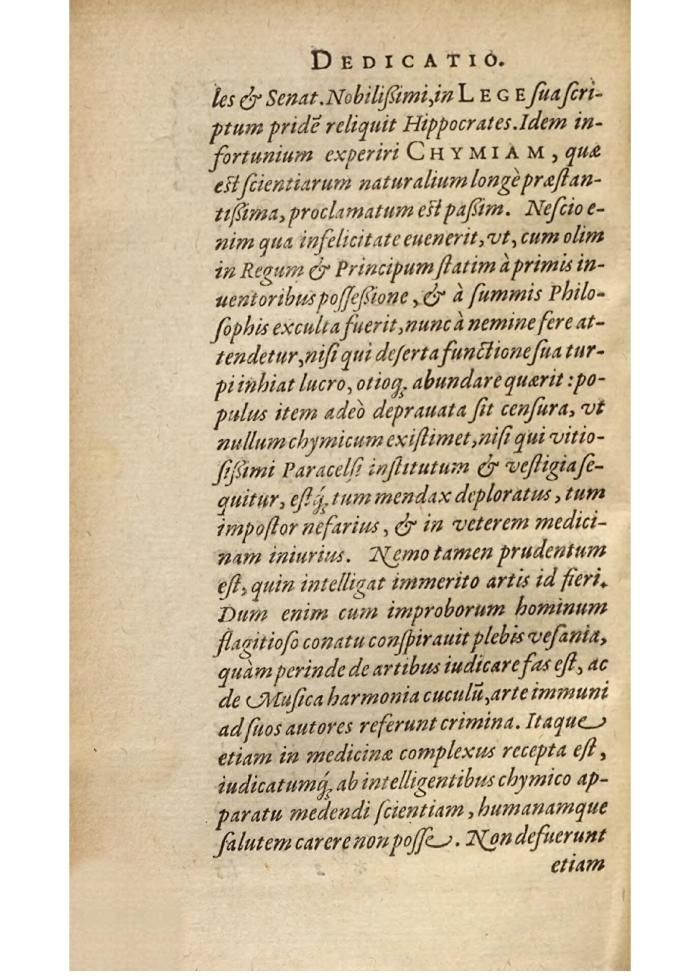 DEDICATIO.
les & Senat. Nobilißimi, in LEGE sua scri-
ptum pridē reliquit Hippocrates. Idem in-
fortunium experiri CHYMIAM, quæ
est scientiarum naturalium longè præstan-
tißima, proclamatum est paßim. Nescio e-
nim qua infelicitate euenerit, vt, cum olim
in Regum & Principum statim à primis in-
uentoribus posseßione, & à summis Philo-
sophis exculta fuerit, nunc à nemine fere at-
tendetur, nisi qui deserta functione sua tur-
pi inhiat lucro, otioq́; abundare quærit: po-
pulus item adeò deprauata sit censura, vt
nullum chymicum existimet, nisi qui vitio-
sißimi Paracelsi institutum & vestigia se-
quitur, estq́; tum mendax deploratus, tum
impostor nefarius, & in veterem medici-
nam iniurius. Nemo tamen prudentum
est, quin intelligat immerito artis id fieri.
Dum enim cum improborum hominum
flagitioso conatu conspirauit plebis vesania,
quàm perinde de artibus iudicare fas est, ac
de Musica harmonia cuculū, arte immuni
ad suos autores referunt crimina. Itaque
etiam in medicinæ complexus recepta est,
iudicatumq́; ab intelligentibus chymico ap-
paratu medendi scientiam, humanamque
salutem carere non posse. Non defuerunt
etiam